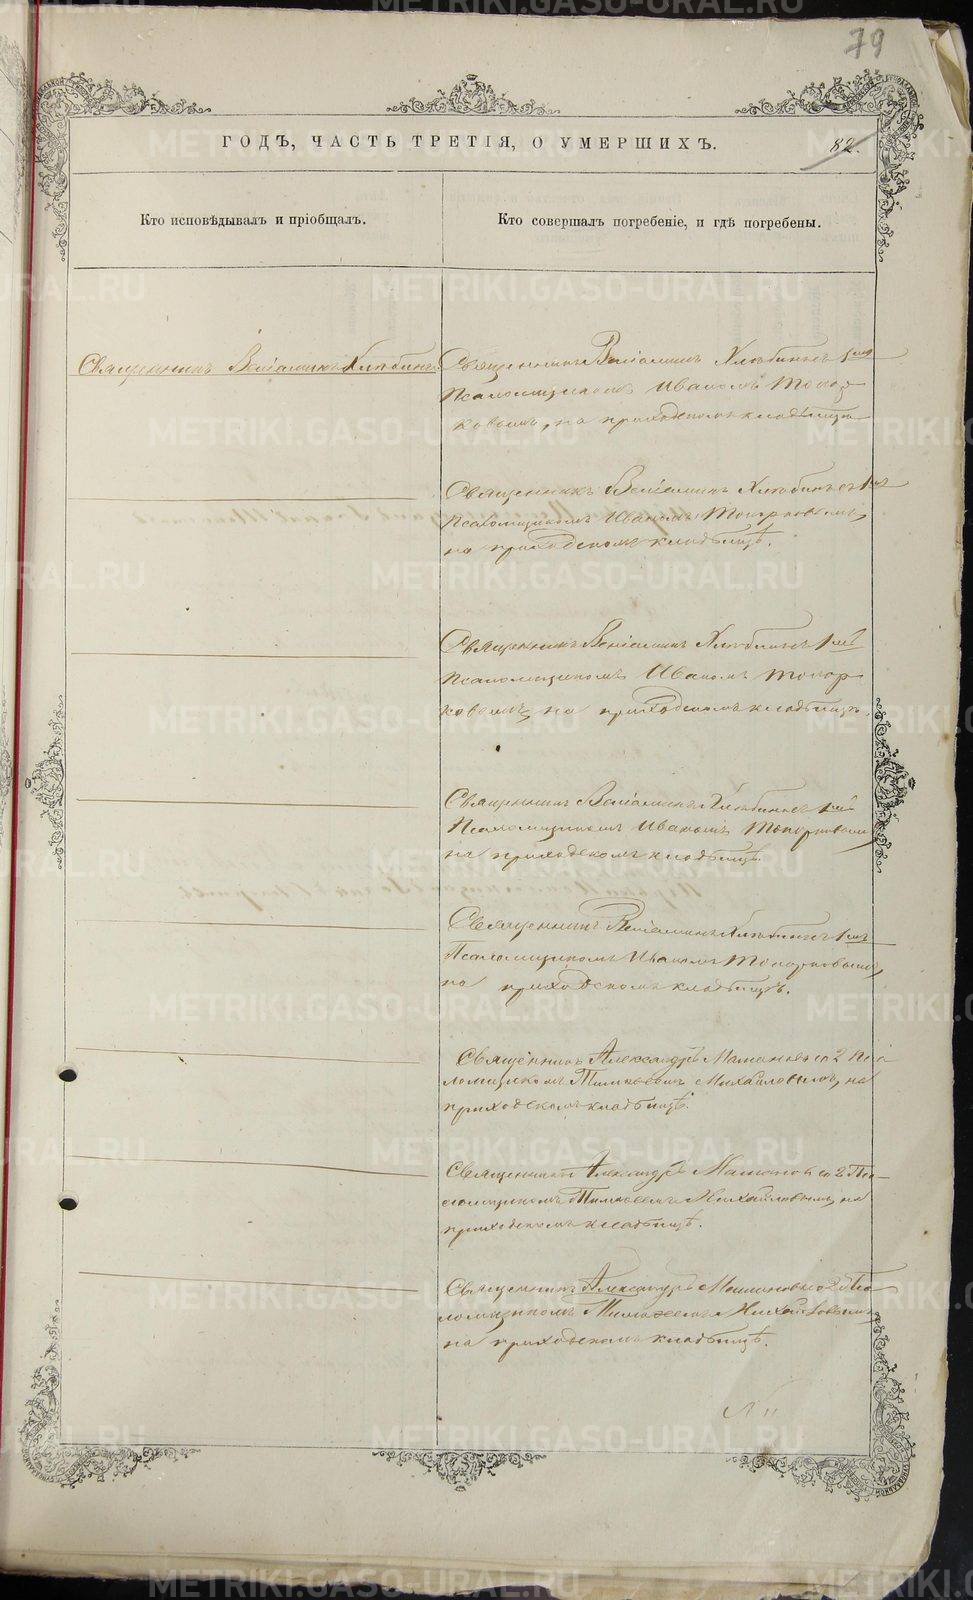 79
ГОДЪ, ЧАСТЬ ТРЕТІЯ, О УМЕРШИХЪ.
82.
Кто исповѣдывалъ и пріобщалъ.
Кто совершалъ погребеніе, и гдѣ погребены.
Священникъ Веніаминъ Хлѣбинъ
Священникъ Веніаминъ Хлѣбинъ съ 1мъ
Псаломщикомъ Иваномъ Топор
ковымъ, на приходскомъ кладбищѣ
Священникъ Веніаминъ Хлѣбинъ съ 1мъ
Псаломщикомъ Иваномъ Топорковымъ,
на приходскомъ кладбищѣ.
Священникъ Веніаминъ Хлѣбинъ съ 1мъ
Псаломщикомъ Иваномъ Топор
ковымъ, на приходскомъ кладбищѣ.
Священникъ Веніаминъ Хлѣбинъ съ 1мъ
Псаломщикомъ Иваномъ Топорковымъ
на приходскомъ кладбищѣ.
Священникъ Веніаминъ Хлѣбинъ съ 1мъ
Псаломщикомъ Иваномъ Топорковымъ,
на приходскомъ кладбищѣ.
Священникъ Александръ съ 2 Пса
ломщикомъ Михайловымъ, на
приходскомъ кладбищѣ.
Священникъ Александръ съ 2 Пса
ломщикомъ Михайловымъ, на
приходскомъ кладбищѣ.
Священникъ Александръ съ 2 Пса
ломщикомъ Михайловымъ,
на приходскомъ кладбищѣ.
METRIKI.GASO-URAL.RU